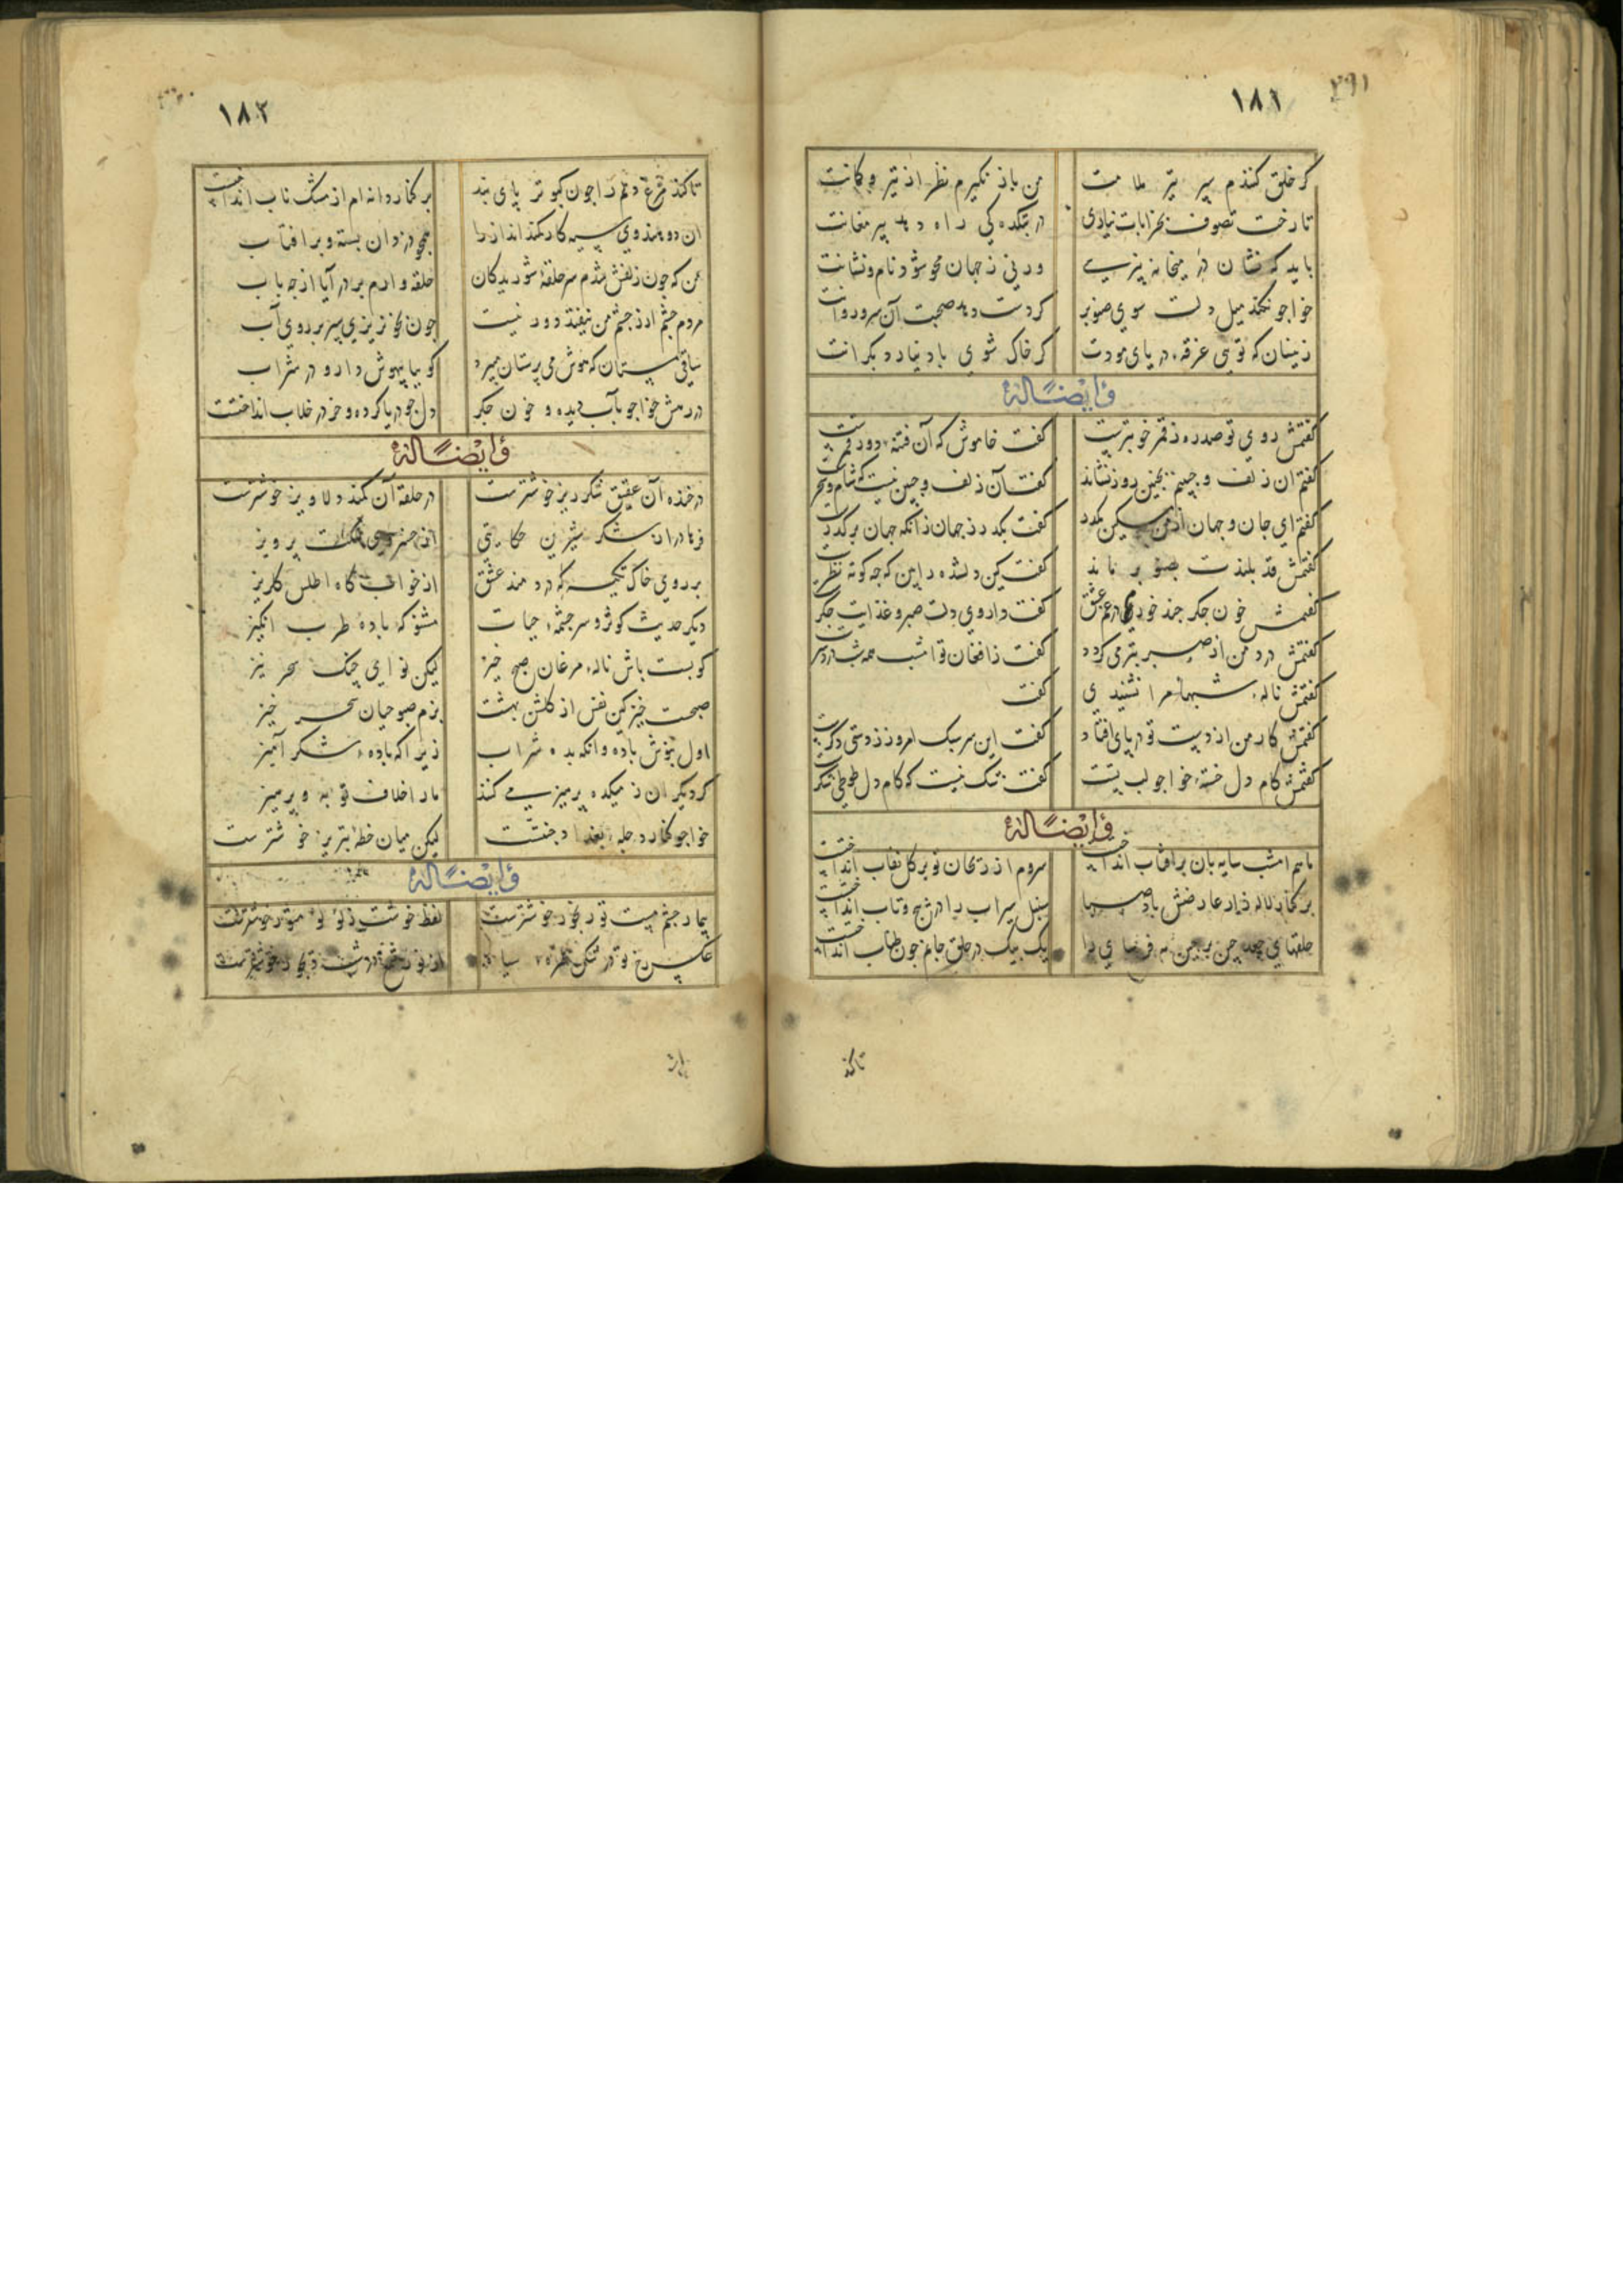 ۲۹۱
۱۸۱
گر خلق کنندم سپر تیر ملامت من باز نگیرم نظر از تیر و کمانت
تا رخت تصوف بخرابات نیاری در بتکده کی راه دهد پیر مغانت
باید که نشان در میخانه بپرسی ورنی ز جهان محو شود نام و نشانت
خواجو نکند میل دلت سوی صنوبر گر دست دهد صحبت آن سرو روانت
زینسان که توئی غرقهٔ دریای مودت گر خاک شوی باد نیارد بکرانت
وایضًا له
گفتمش روی تو صدره ز قمر خوبترست گفت خاموش که آن فتنهٔ دور قمرست
گفتم آن زلف و جبینم بچنین روز نشاند گفت آن زلف و جبین نیست که شام و سحرست
گفتم ای جان و جهان از من مسکین بگذر گفت بگذر ز جهان زانکه جهان برگذرست
گفتمش قد بلندت بصنوبر ماند گفت کین دلشده را بین که چه کوته نظرست
گفتمش خون جگر چند خورم در غم عشق گفت داروی دلت صبر و غذایت جگرست
گفتمش درد من از صبر بتر می گردد گفت زافغان تو امشب همه شب دردسرست
گفتمش نالهٔ شبهای مرا نشنیدی گفت
گفتمش کار من از دست تو در پای افتاد گفت این سر سبک امروز ز دستی دگرست
گفتمش کام دل خستهٔ خواجو لب تست گفت شک نیست که کام دل طوطی شکرست
وایضًا له
ماهم امشب سایه بان بر آفتاب انداخت سروم از ریحان تر بر گل نقاب انداخت
بر کنار لاله زار عارضش باد صبا سنبل سیراب را در پیچ و تاب انداخت
حلقهای جعد چین بر چین مه فرسای را یک بیک در حلق جانم چون طناب انداخت
تا کند
۱۸۲
تا کند مرغ دلم را چون کبوتر پای بند بر کنار دانه دام از مشک ناب انداخت
آن دو هندوی سیه کار کمند انداز را همچو دزدان بسته و بر آفتاب
من که چون زلفش شدم سر حلقهٔ شوریدگان حلقه وارم بر در آیا از چه باب
مردم چشم ار ز چشم من بیفتد دور نیست چون بخونریزی سپر بر روی آب
ساقی مستان که هوش می پرستان میبرد گوییا بیهوش دارو در شراب
در رهش خواجو بآب دیده و خون جگر دل چو دریا کرده و خر در خلاب انداختست
وایضًا له
در خنده آن عقیق شکر ریز خوشترست در حلقه آن کمند دلاویز خوشترست
فرهاد را ز شکر شیرین حکایتی از خسروی مملکت پرویز
بر روی خاک تکیه که دردمند عشق از خوابگاه اطلس گلریز
دیگر حدیث کوثر و سرچشمهٔ حیات مشنو که بادهٔ طرب انگیز
گو پست باش نالهٔ مرغان صبح خیز لیکن نوای چنگ سحر نیز
صبحست خیز کین نفس از گلشن بهشت بزم صبوحیان سحر خیز
اول بنوش باده وانگه بده شراب زیرا که بادهٔ شکر آمیز
گر دیگران ز میکده پرهیز می کنند ما را خلاف توبه و پرهیز
خواجو کنار دجلهٔ بغداد جنتست لیکن میان خطهٔ تبریز خوشترست
وایضًا له
بیمار چشم مست تو رنجور خوشترست لفظ خوشت ز لؤلؤ منثور خوشترست
عکس رخ تو در شکن طرهٔ سیاه از نور شمع در شب دیجور خوشترست